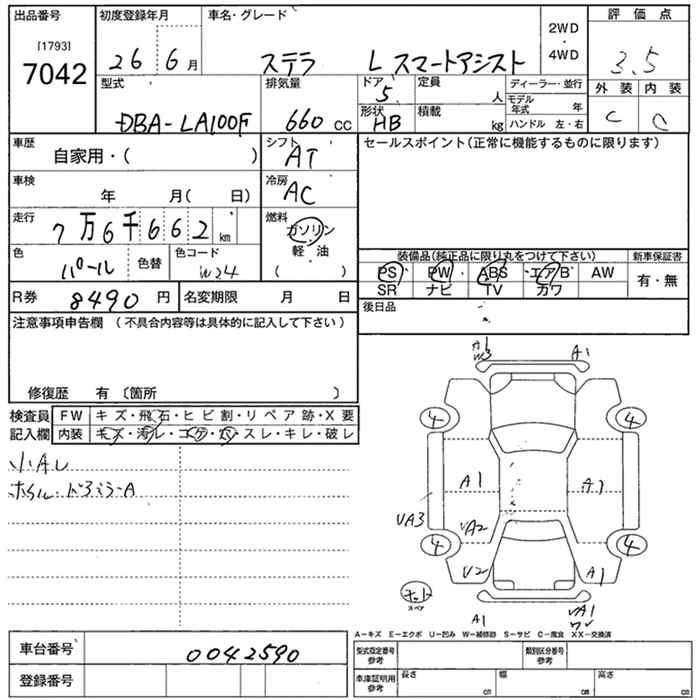 出品番号 初度登録年月 車名・グレード 2WD・4WD 評価点
[1793] 7042 26 6月 ステラ L スマートアシスト 3.5
型式 排気量 ドア 定員 ディーラー・並行 外装 内装
DBA-LA100F 660cc 5 人 モデル年式 年 C C
形状 積載 ハンドル 左・右
HB kg
車歴 シフト セールスポイント(正常に機能するものに限ります)
自家用・( ) AT
車検 冷房
年 月( 日) AC
走行 燃料
7万6千662km ガソリン
軽・油
( )
色 色替 色コード 装備品(純正品に限り丸をつけて下さい) 新車保証書
パール W24 PS PW ABS エアB AW 有・無
SR ナビ TV カワ
R券 8490円 名変期限 月 日 後日品
注意事項申告欄 (不具合内容等は具体的に記入して下さい)
修復歴 有〔箇所 〕
検査員 FW キズ・飛石・ヒビ割・リペア跡・X要
記入欄 内装 キズ・汚レ・コゲ・穴・スレ・キレ・破レ
小AU
ホイル・ドアミラーA
W3 A1
4 4
A1 A1
UA3 UA2
4 4
U2 A1
キット
スペア
A1 UA1
A-キズ E-エクボ U-凹み W-補修跡 S-サビ C-腐食 XX-交換済
車台番号 0042590 型式指定番号 参考 類別区分番号 参考
登録番号 車庫証明用 参考 長さ cm 幅 cm 高さ cm